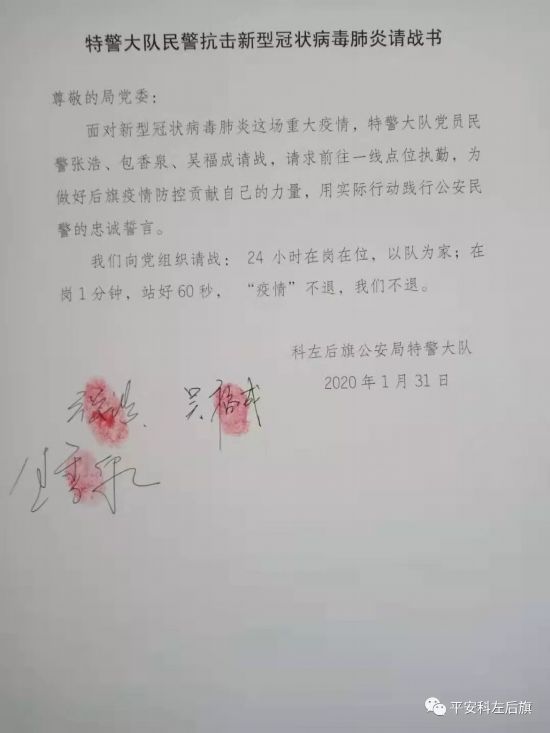 特警大队民警抗击新型冠状病毒肺炎请战书
尊敬的局党委：
面对新型冠状病毒肺炎这场重大疫情，特警大队党员民
警张浩、包香泉、吴福成请战，请求前往一线点位执勤，为
做好后旗疫情防控贡献自己的力量，用实际行动践行公安民
警的忠诚誓言。
我们向党组织请战： 24 小时在岗在位，以队为家；在
岗 1 分钟，站好 60 秒， “疫情”不退，我们不退。
科左后旗公安局特警大队
2020 年 1 月 31 日
张浩 吴福成
包香泉
平安科左后旗